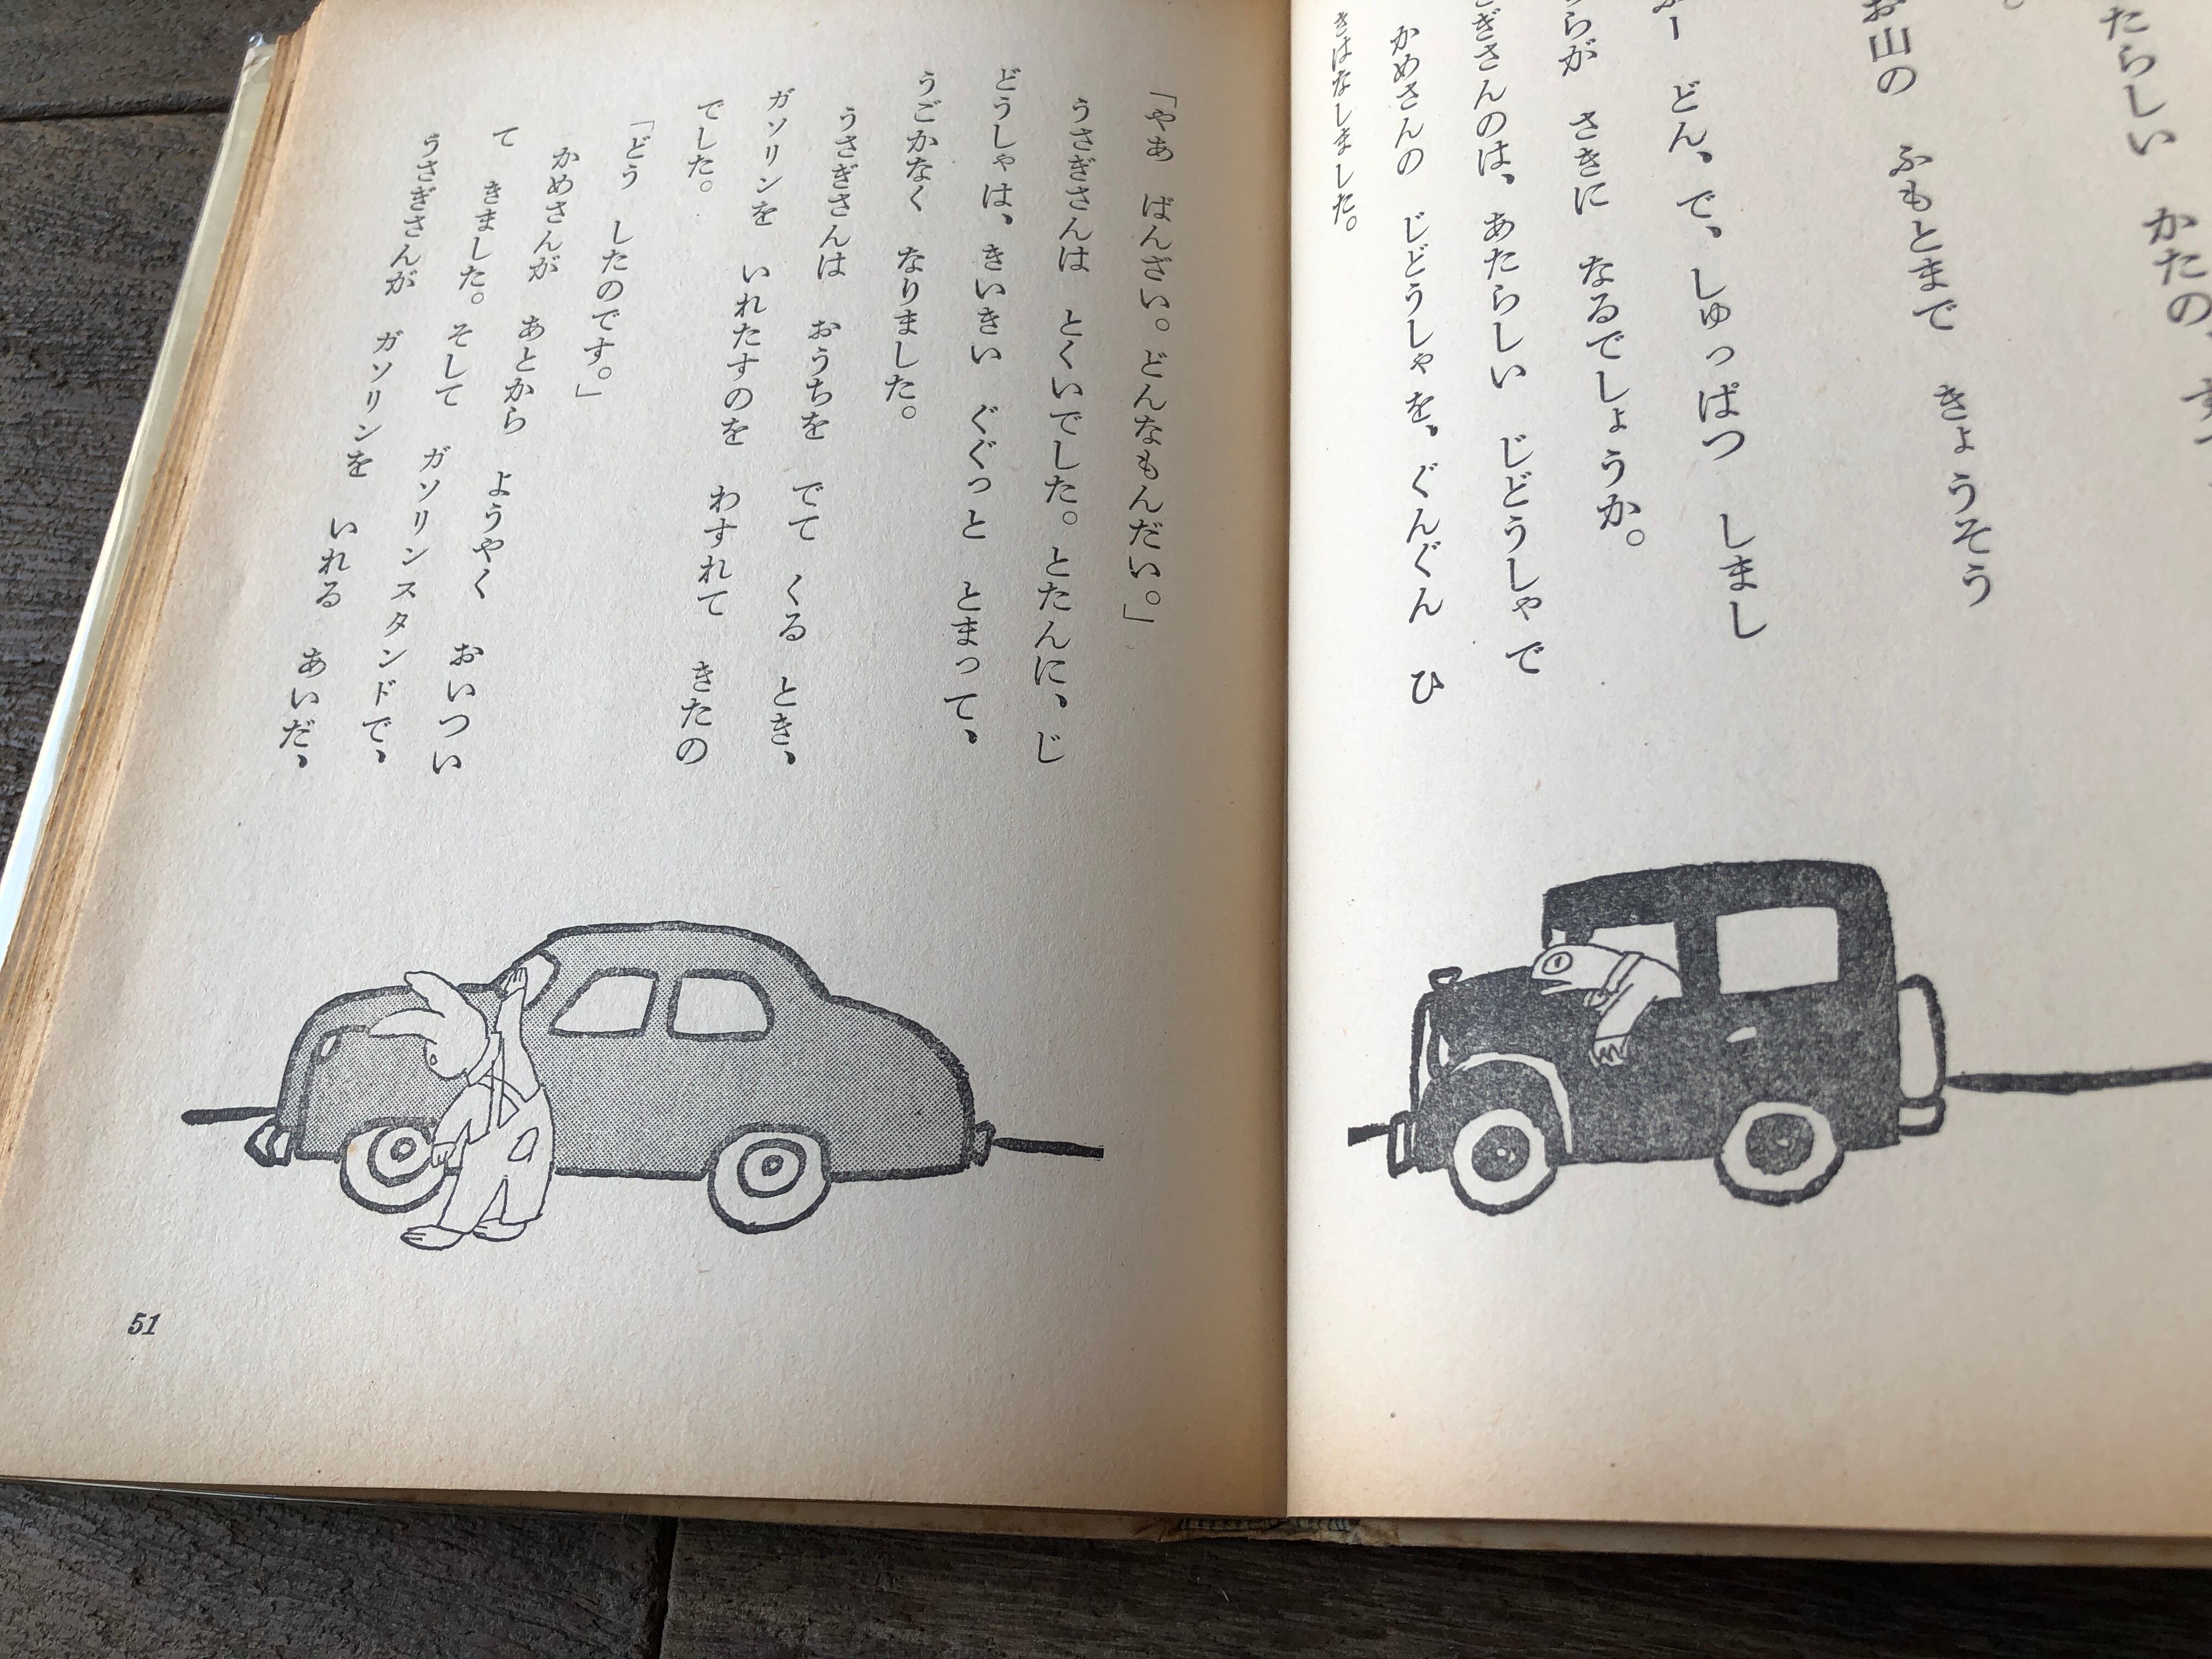 たらしい　かたの、
お山の　ふもとまで　きょうそう
どん、で、しゅっぱつ　しまし
らが　さきに　なるでしょうか。
ぎさんのは、あたらしい　じどうしゃで
かめさんの　じどうしゃを、ぐんぐん　ひ
きはなしました。
「やあ　ばんざい。どんなもんだい。」
うさぎさんは　とくいでした。とたんに、じ
どうしゃは、きいきい　ぐぐっと　とまって、
うごかなく　なりました。
うさぎさんは　おうちを　でて　くる　とき、
ガソリンを　いれたすのを　わすれて　きたの
でした。
「どう　したのです。」
かめさんが　あとから　ようやく　おいつい
て　きました。そして　ガソリンスタンドで、
うさぎさんが　ガソリンを　いれる　あいだ、
51